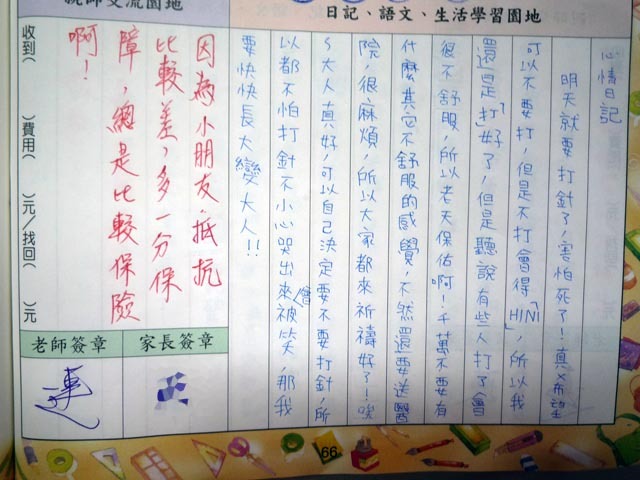 日記、語文、生活學習園地
心情日記
明天就要打針了,害怕死了!真希望
可以不要打,但是不打會得「H1N1」,所以我
還是「打」好了,但是聽說有些人打了會
很不舒服,所以老天保佑啊!千萬不要有
什麼其它不舒服的感覺,不然還要送醫
院,很麻煩,所以大家都來祈禱好了!唉
~大人真好,可以自己決定要不要打針,所
以都不怕打針不小心哭出來會被笑,那我
要快快長大變大人!!
親師交流園地
因為小朋友抵抗
比較差,多一分保
障,總是比較保險
啊!
收到( )費用( )元/找回( )元
家長簽章
老師簽章
連
66